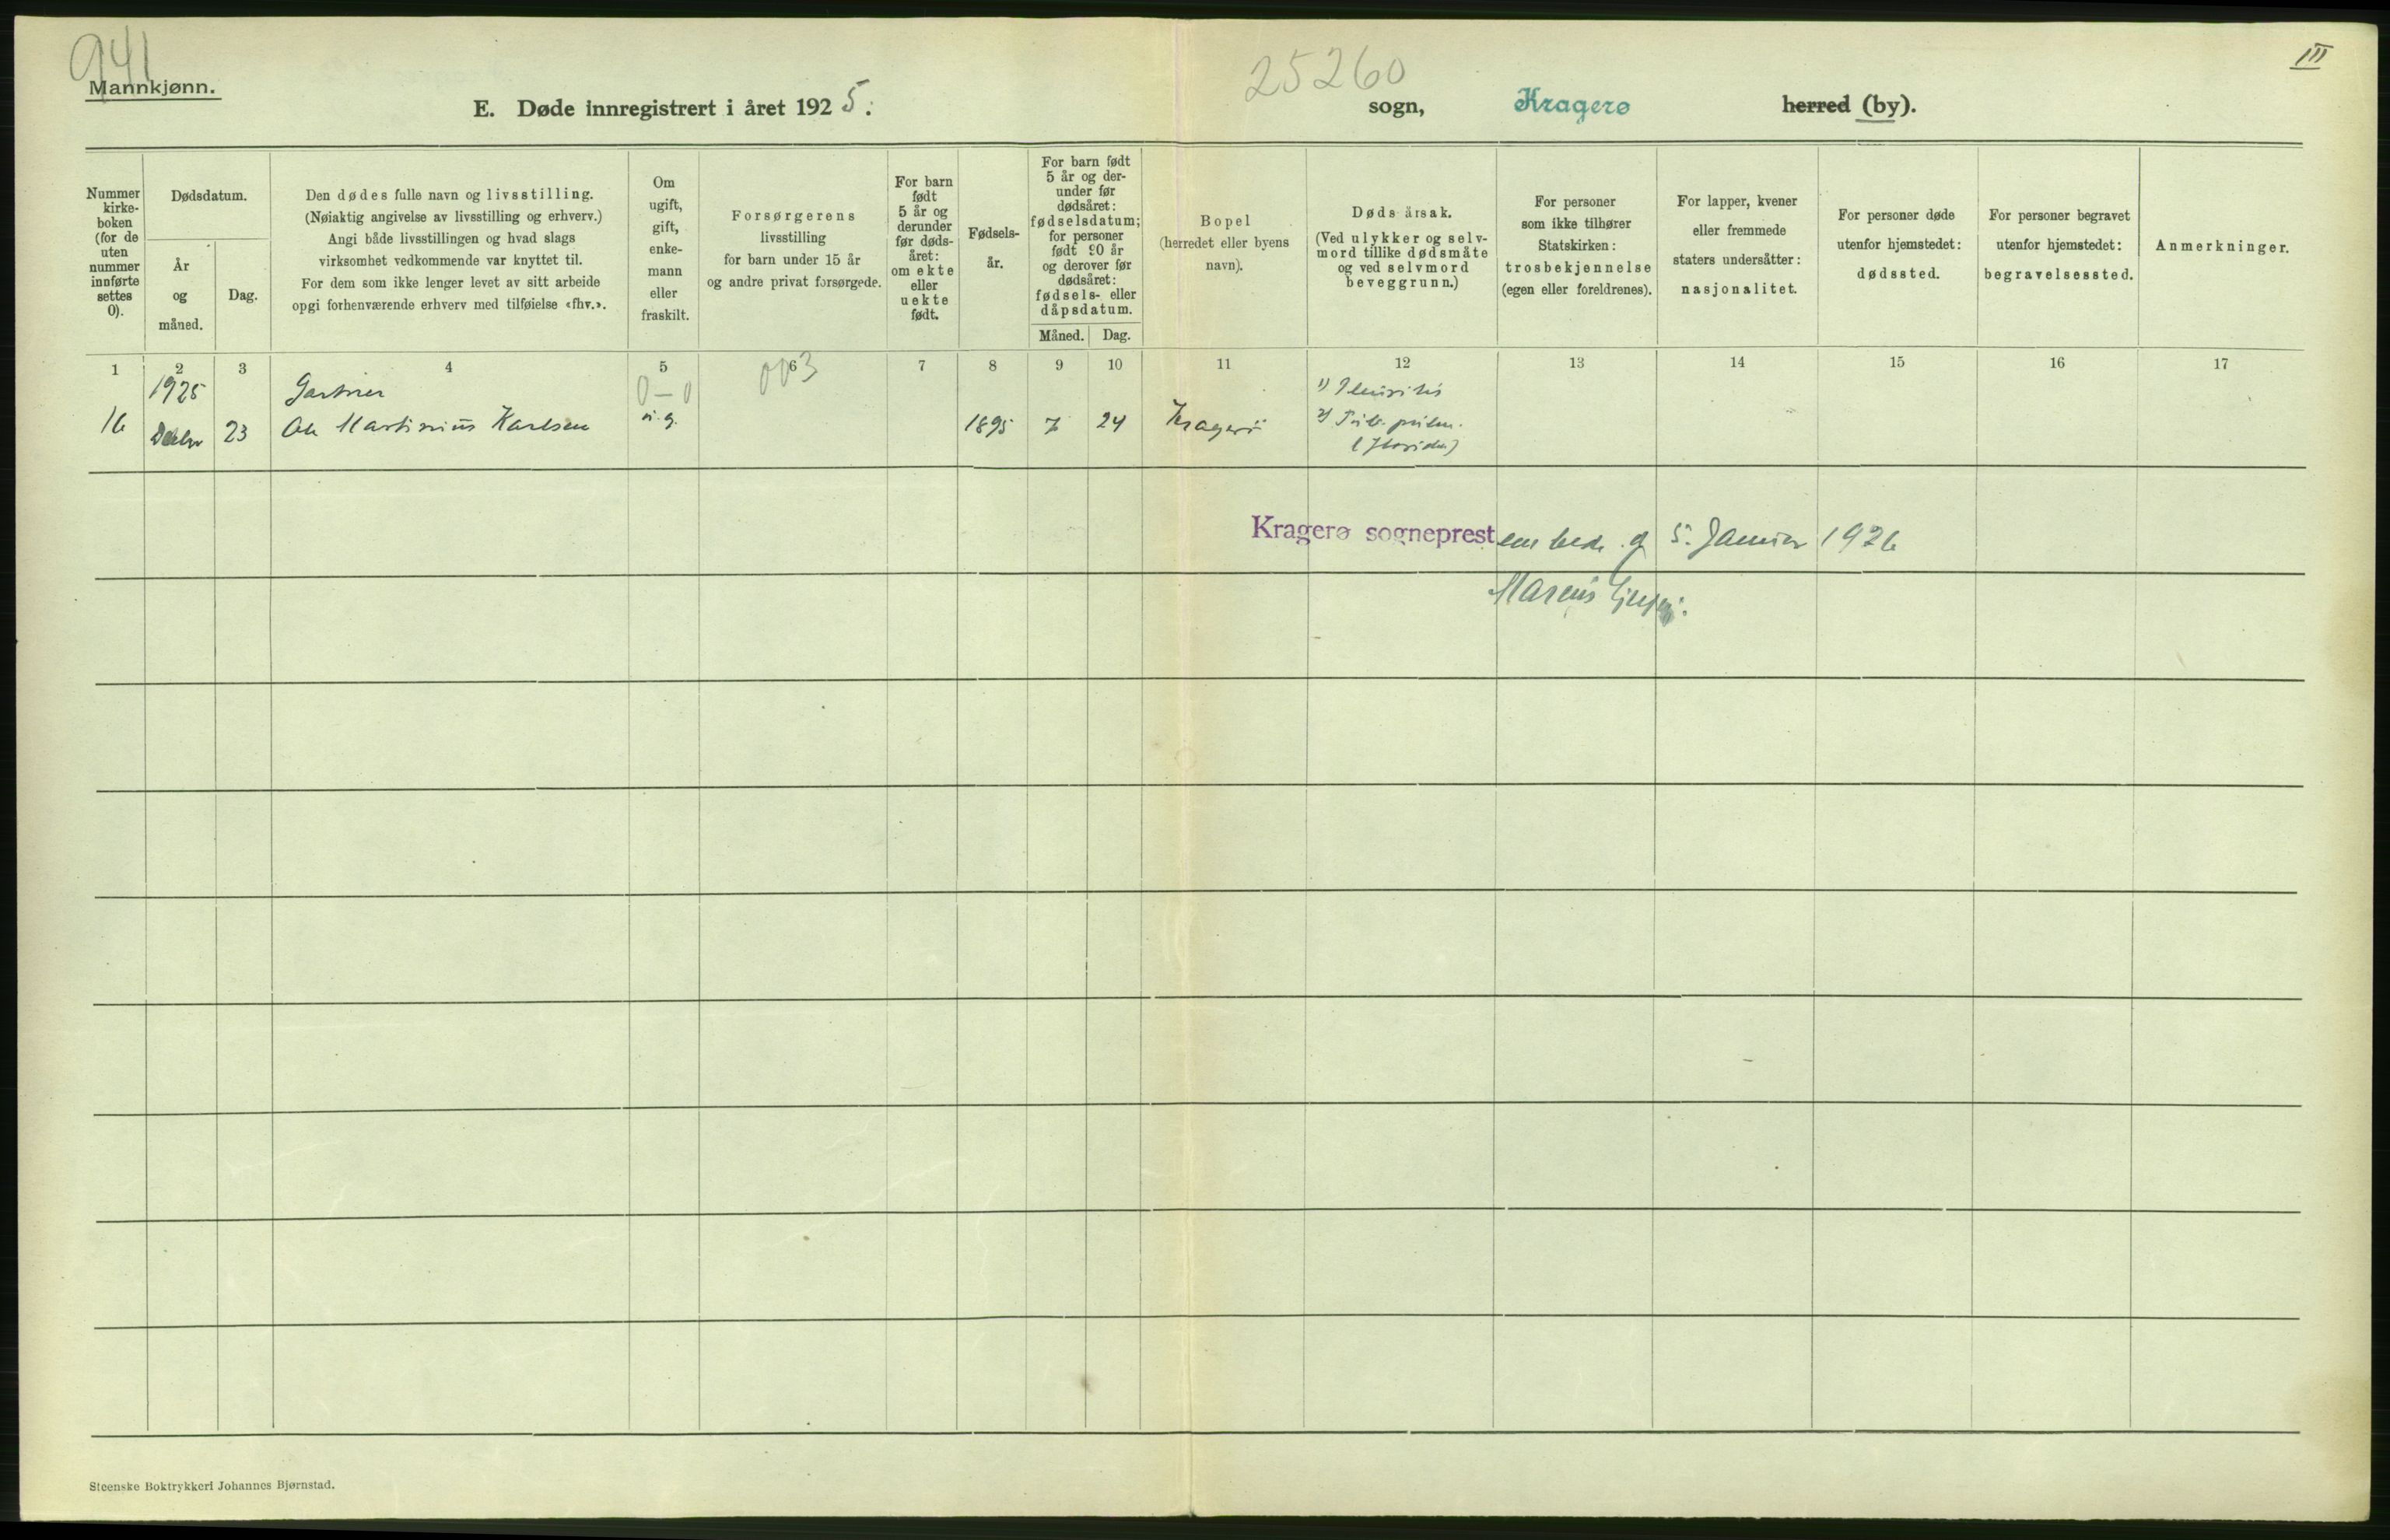 941
25260
III
Mannkjønn.
E. Døde innregistrert i året 1925.
sogn, Kragerø herred (by).
Nummer
kirke-
boken
(for de
uten
nummer
innførte
settes
0).
Dødsdatum.
År
og
måned.
Dag.
Den dødes fulle navn og livsstilling.
(Nøiaktig angivelse av livsstilling og erhverv.)
Angi både livsstillingen og hvad slags
virksomhet vedkommende var knyttet til.
For dem som ikke lenger levet av sitt arbeide
opgi forhenværende erhverv med tilføielse «fhv.».
Om
ugift,
gift,
enke-
mann
eller
fraskilt.
Forsørgerens
livsstilling
for barn under 15 år
og andre privat forsørgede.
For barn
født
5 år og
derunder
før døds-
året:
om ekte
eller
uekte
født.
Fødsels-
år.
For barn født
5 år og der-
under før
dødsåret:
fødselsdatum;
for personer
født 90 år
og derover før
dødsåret:
fødsels- eller
dåpsdatum.
Måned. Dag.
Bopel
(herredet eller byens
navn).
Dødsårsak.
(Ved ulykker og selv-
mord tillike dødsmåte
og ved selvmord
beveggrunn.)
For personer
som ikke tilhører
Statskirken:
trosbekjennelse
(egen eller foreldrenes).
For lapper, kvener
eller fremmede
staters undersåtter:
nasjonalitet.
For personer døde
utenfor hjemstedet:
dødssted.
For personer begravet
utenfor hjemstedet:
begravelsessted.
Anmerkninger.
1 2 3 4 5 6 7 8 9 10 11 12 13 14 15 16 17
1925 Gartner 0-0 003 1) Pleuritis
16 Decbr 23 Ole Martinius Karlsen u.g. 1895 7 24 Kragerø 2) Tub. pulm.
Kragerø sogneprestembede d 5. Januar 1926
Marcus
Steenske Boktrykkeri Johannes Bjørnstad.